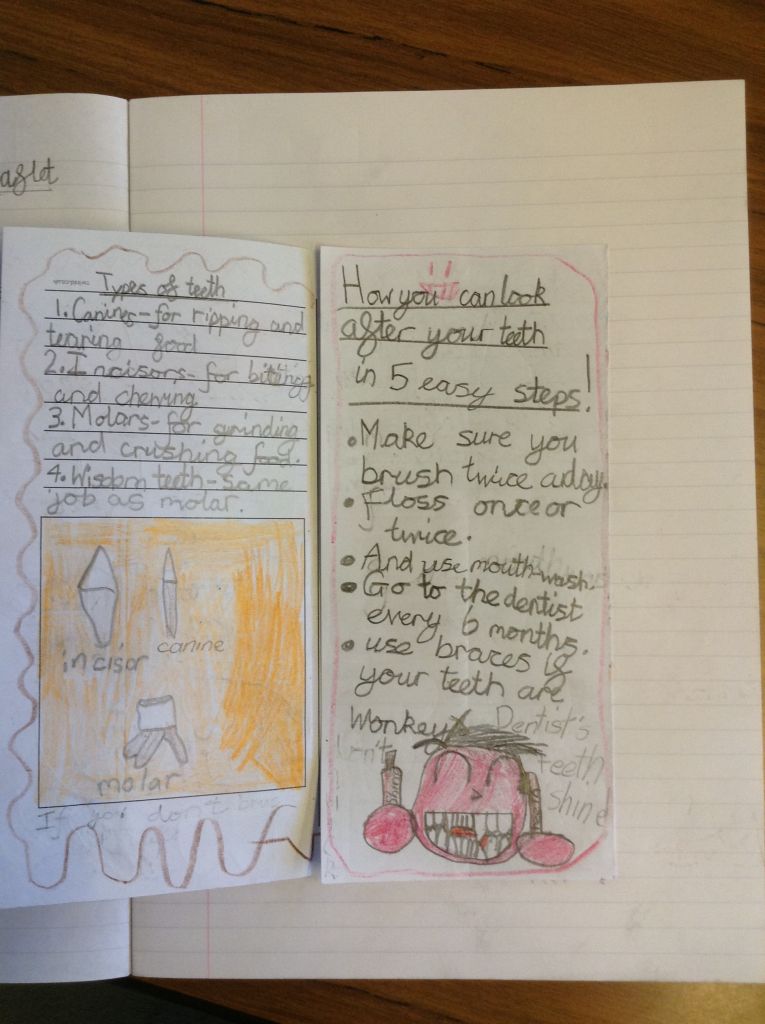 aflet
Types of teeth
1. Canines - for ripping and
tearing food
2. Incisors - for biteing
and chewing
3. Molars - for grinding
and crushing food.
4. Wisdom teeth - same
job as molar.
incisor
canine
molar
If you don't
How you can look
after your teeth
in 5 easy steps!
• Make sure you
brush twice a day.
• Floss once or
twice.
• And use mouth-wash.
• Go to the dentist
every 6 months.
• use braces if
your teeth are
wonkey
Dentist's
teeth
shine